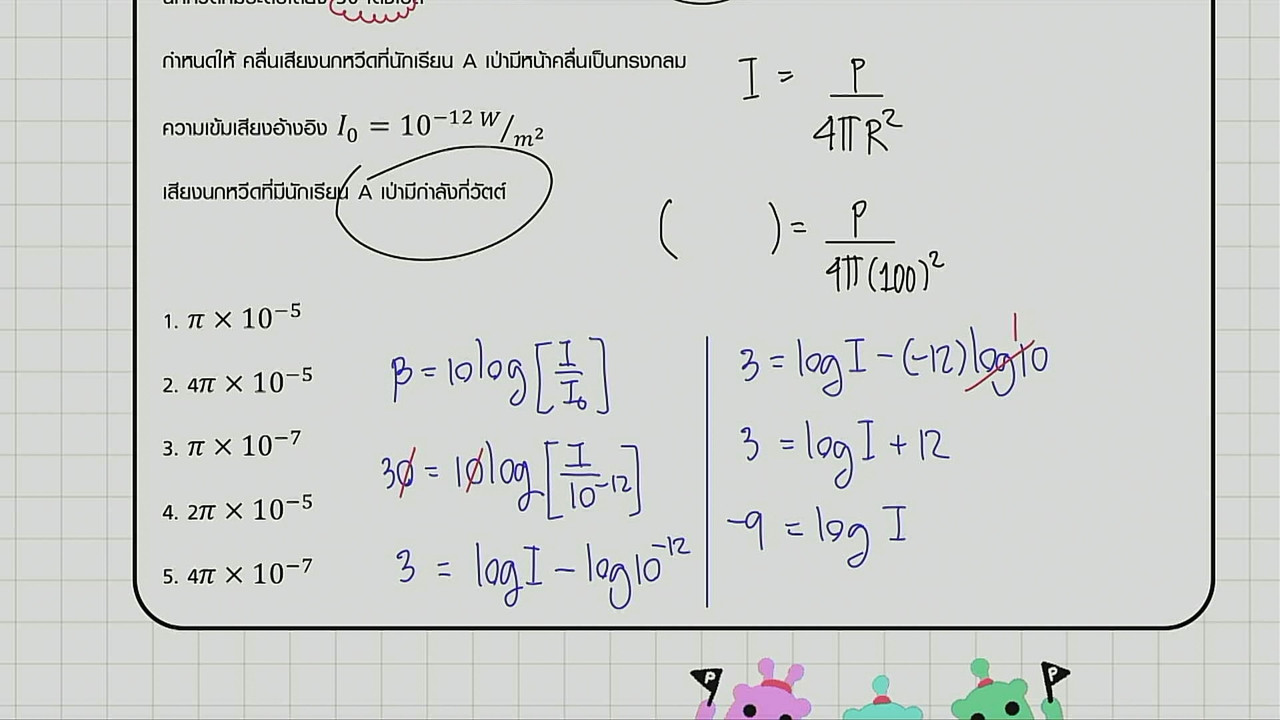 กำหนดให้ คลื่นเสียงนกหวีดที่นักเรียน A เป่ามีหน้าคลื่นเป็นทรงกลม
ความเข้มเสียงอ้างอิง I₀ = 10⁻¹² W/m²
เสียงนกหวีดที่มีนักเรียน A เป่ามีกำลังกี่วัตต์
1. π × 10⁻⁵
2. 4π × 10⁻⁵
3. π × 10⁻⁷
4. 2π × 10⁻⁵
5. 4π × 10⁻⁷
I = P / 4πR²
( ) = P / 4π(100)²
β = 10log[I/I₀]
30 = 10log[I/10⁻¹²]
3 = logI - log10⁻¹²
3 = logI - (-12)log10 1
3 = logI + 12
-9 = log I
P
P